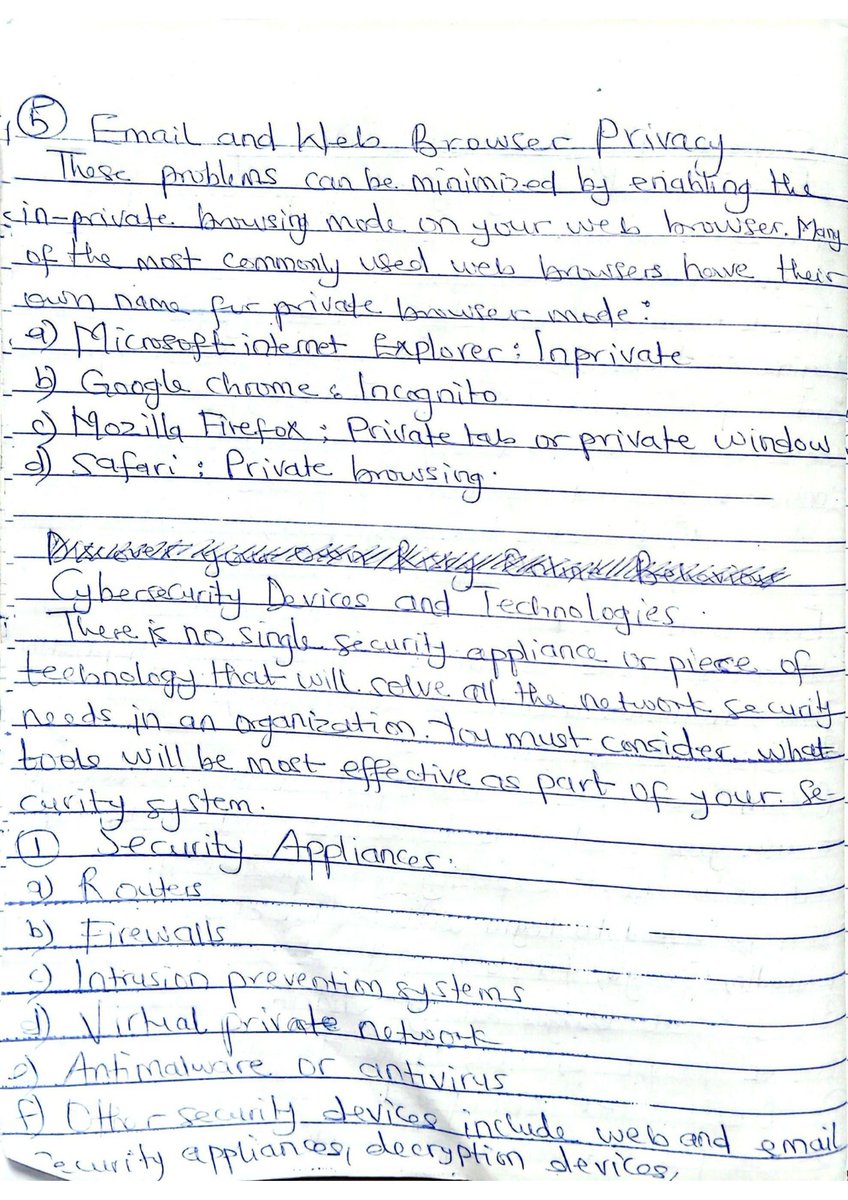 ⑤ Email and Web Browser Privacy
These problems can be minimized by enabling the
in-private browsing mode on your web browser. Many
of the most commonly used web browsers have their
own name for private browser mode:
a) Microsoft internet Explorer: Inprivate
b) Google chrome: Incognito
c) Mozilla Firefox: Private tab or private window
d) Safari: Private browsing.
Discover your own Risky Online Behaviour
Cybersecurity Devices and Technologies.
There is no single security appliance or piece of
technology that will solve all the network security
needs in an organization. You must consider what
tools will be most effective as part of your se-
curity system.
① Security Appliances:
a) Routers
b) Firewalls
c) Intrusion prevention systems
d) Virtual private network
e) Antimalware or antivirus
f) Other security devices include web and email
security appliances, decryption devices,